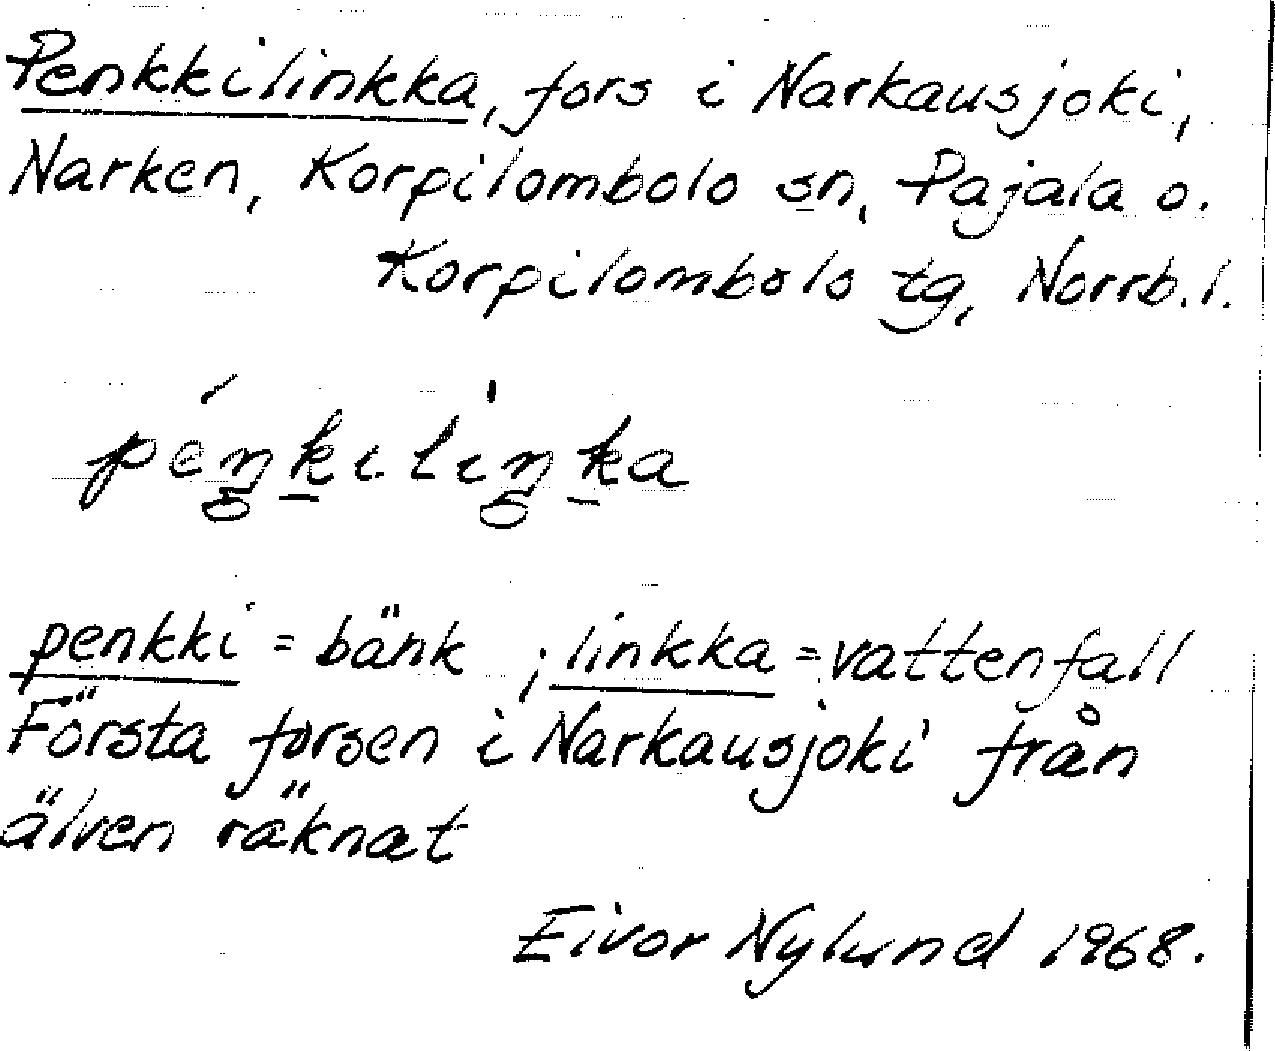 Penkkilinkka, fors i Narkausjoki,
Narken, Korpilombolo sn, Pajala o.
Korpilombolo tg, Norrb.l.
péŋ̥k̲ilìŋ̥k̲a
penkki = bänk ; linkka = vattenfall
Första forsen i Narkausjoki från
älven räknat
Eivor Nylund 1968.